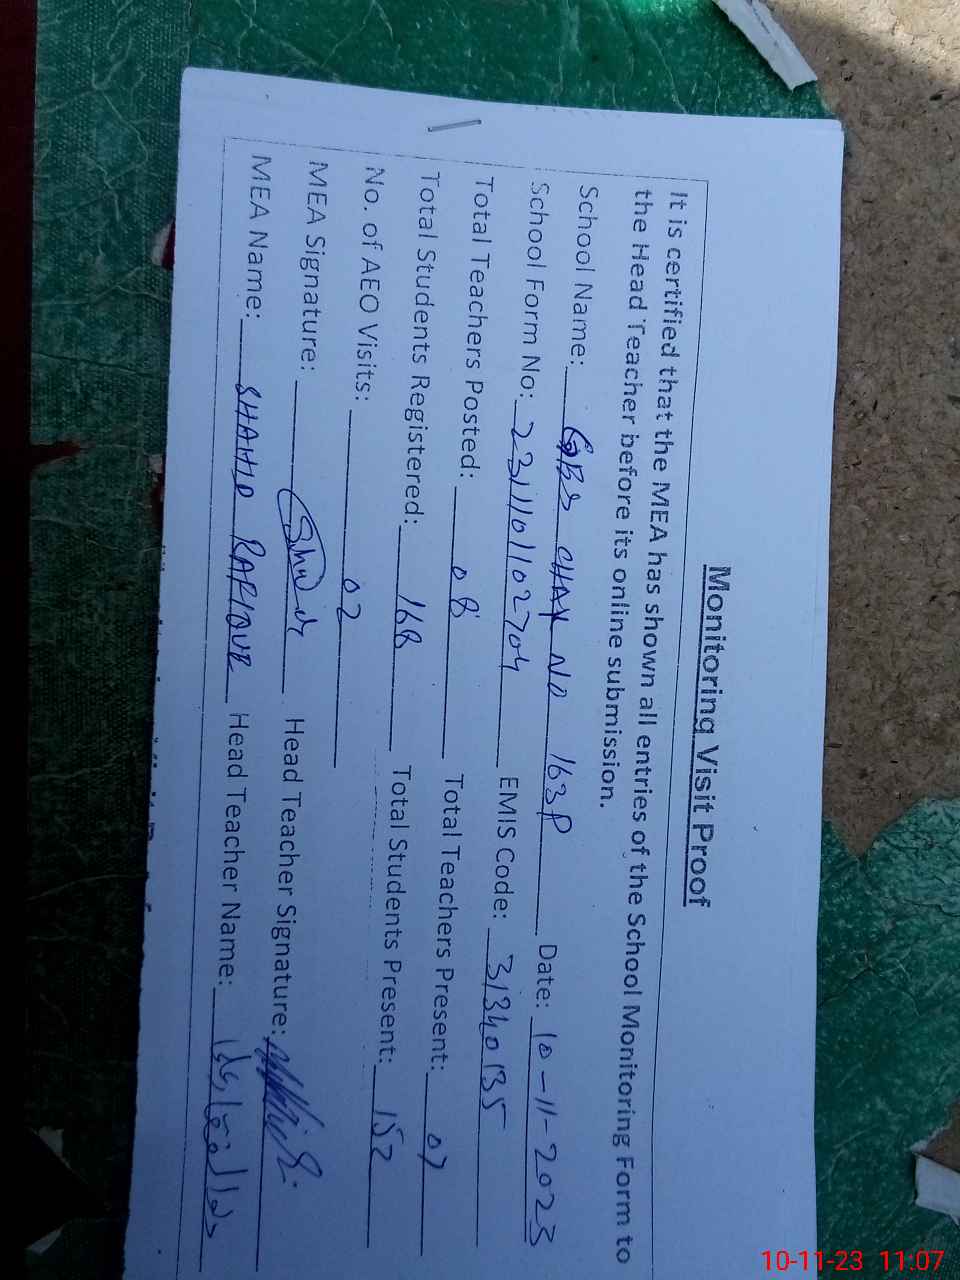 Monitoring Visit Proof
It is certified that the MEA has shown all entries of the School Monitoring Form to
the Head Teacher before its online submission.
School Name: GBS CHAK NO 163P Date: 10-11-2023
School Form No: 2311101102704 EMIS Code: 31340135
Total Teachers Posted: 08 Total Teachers Present: 07
Total Students Registered: 168 Total Students Present: 152
No. of AEO Visits: 02
MEA Signature: Head Teacher Signature:
MEA Name: SHAHID RAFIQUE Head Teacher Name:
10-11-23 11:07